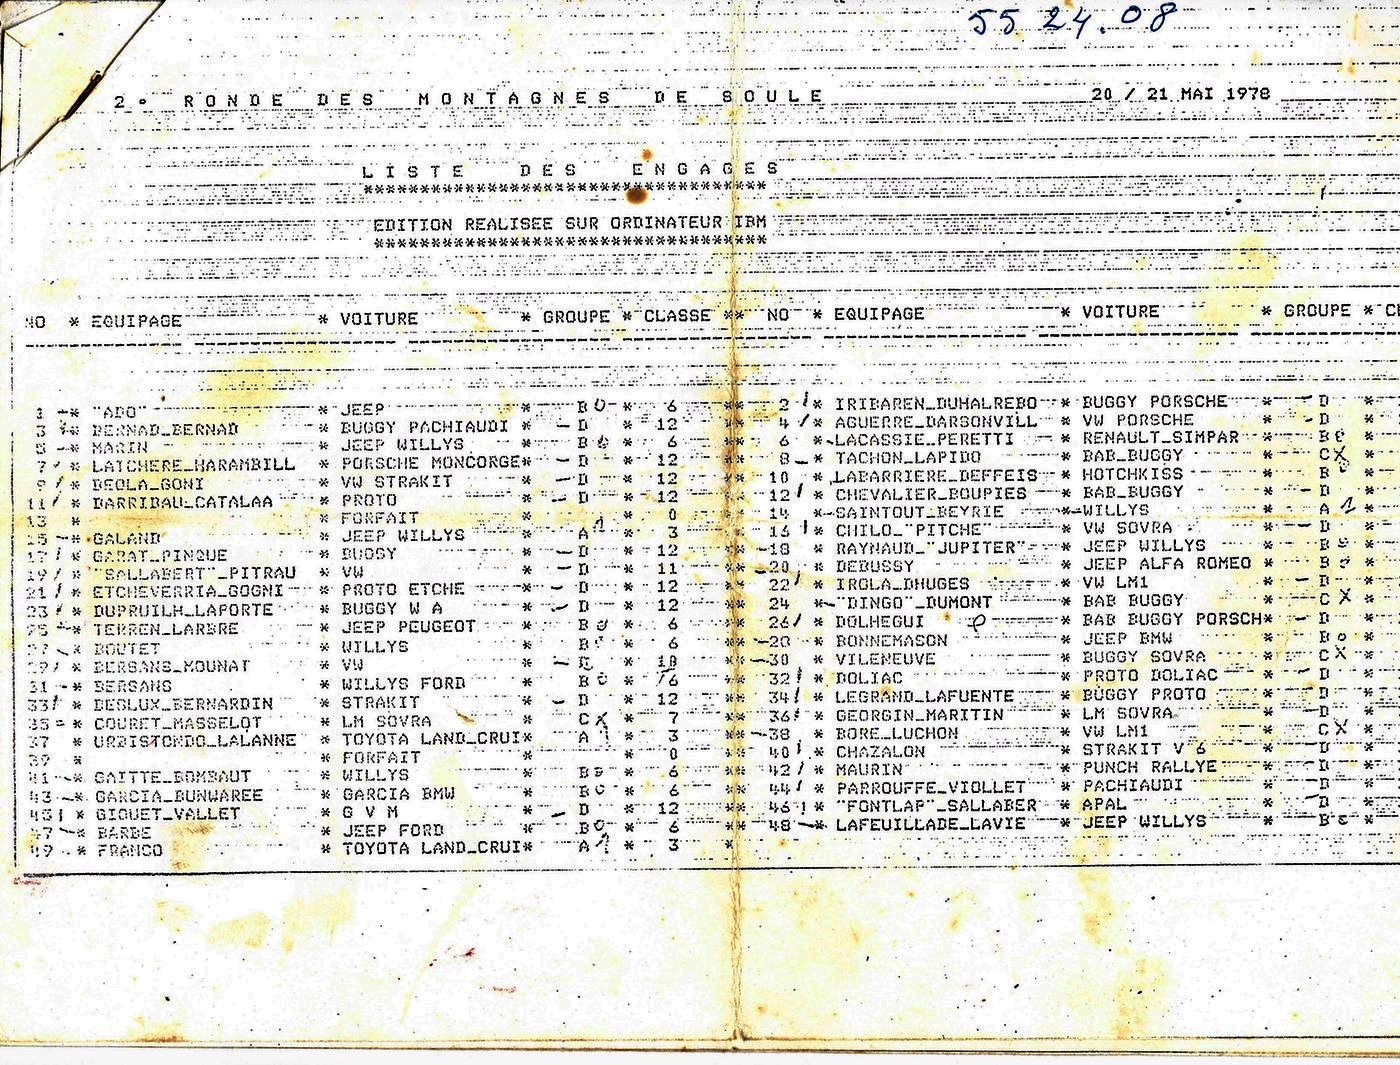 55 24.08
2° RONDE DES MONTAGNES DE SOULE 20 / 21 MAI 1978
LISTE DES ENGAGES
**********************************
EDITION REALISEE SUR ORDINATEUR IBM
**********************************
NO * EQUIPAGE * VOITURE * GROUPE * CLASSE ** NO * EQUIPAGE * VOITURE * GROUPE *
1 * "ADO" * JEEP * B * 6 ** 2 * IRIBAREN_DUHALREBO * BUGGY PORSCHE * D *
3 * BERNAD_BERNAD * BUGGY PACHIAUDI * D * 12 ** 4 * AGUERRE_DARSONVILL * VW PORSCHE * D *
5 * MARIN * JEEP WILLYS * B * 6 ** 6 * LACASSIE_PERETTI * RENAULT_SIMPAR * B *
7 * LATCHERE_HARAMBILL * PORSCHE MONCORGE * D * 12 ** 8 * TACHON_LAPIDO * BAB_BUGGY * C X *
9 * DEOLA_GONI * VW STRAKIT * D * 12 ** 10 * LABARRIERE_DEFFEIS * HOTCHKISS * B *
11 * BARRIBAU_CATALAA * PROTO * D * 12 ** 12 * CHEVALIER_BOUPIES * BAB_BUGGY * D *
13 * * FORFAIT * * 0 ** 14 * SAINTOUT_BEYRIE * WILLYS * A 1 *
15 * GALAND * JEEP WILLYS * A 1 * 3 ** 16 * CHILO_"PITCHE" * VW SOVRA * D *
17 * GARAT_PINQUE * BUGGY * D * 12 ** 18 * RAYNAUD_"JUPITER" * JEEP WILLYS * B *
19 * "SALLABERT"_PITRAU * VW * D * 11 ** 20 * DEBUSSY * JEEP ALFA ROMEO * B *
21 * ETCHEVERRIA_GOGNI * PROTO ETCHE * D * 12 ** 22 * IROLA_DHUGES * VW LM1 * D *
23 * DUPRUILH_LAPORTE * BUGGY W A * D * 12 ** 24 * "DINGO"_DUMONT * BAB BUGGY * C X *
25 * TERREN_LARBRE * JEEP PEUGEOT * B * 6 ** 26 * DOLHEGUI * BAB BUGGY PORSCH * D *
27 * BOUTET * WILLYS * B * 6 ** 28 * BONNEMASON * JEEP BMW * B *
29 * BERSANS_MOUNAT * VW * * 10 ** 30 * VILENEUVE * BUGGY SOVRA * C X *
31 * BERSANS * WILLYS FORD * B * 6 ** 32 * DOLIAC * PROTO DOLIAC * D *
33 * DESLUX_BERNARDIN * STRAKIT * D * 12 ** 34 * LEGRAND_LAFUENTE * BUGGY PROTO * D *
35 * COURET_MASSELOT * LM SOVRA * C X * 7 ** 36 * GEORGIN_MARITIN * LM SOVRA * D *
37 * URBISTONDO_LALANNE * TOYOTA LAND_CRUI * A 1 * 3 ** 38 * BORE_LUCHON * VW LM1 * C X *
39 * * FORFAIT * * 0 ** 40 * CHAZALON * STRAKIT V 6 * D *
41 * GAITTE_BOMBAUT * WILLYS * B * 6 ** 42 * MAURIN * PUNCH RALLYE * D *
43 * GARCIA_BUNWAREE * GARCIA BMW * B * 6 ** 44 * PARROUFFE_VIOLLET * PACHIAUDI * D *
45 * GIQUET_VALLET * G V M * D * 12 ** 46 * "FONTLAP"_SALLABER * APAL * D *
47 * BARBE * JEEP FORD * B * 6 ** 48 * LAFEUILLADE_LAVIE * JEEP WILLYS * B *
49 * FRANCO * TOYOTA LAND_CRUI * A 1 * 3 **